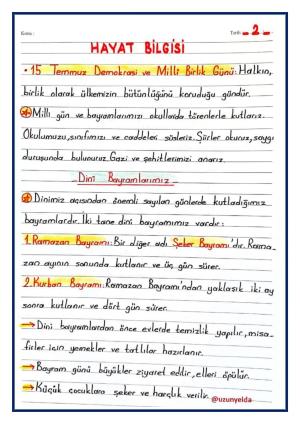 Konu: Tarih: - 2 -
HAYAT BİLGİSİ
• 15 Temmuz Demokrasi ve Milli Birlik Günü: Halkın,
birlik olarak ülkemizin bütünlüğünü koruduğu gündür.
Milli gün ve bayramlarımızı okullarda törenlerle kutlarız.
Okulumuzu, sınıfımızı ve caddeleri süsleriz. Şiirler okuruz, saygı
duruşunda bulunuruz. Gazi ve şehitlerimizi anarız.
Dini Bayramlarımız
Dinimiz açısından önemli sayılan günlerde kutladığımız
bayramlardır. İki tane dini bayramımız vardır:
1. Ramazan Bayramı: Bir diğer adı Şeker Bayramı'dır. Rama-
zan ayının sonunda kutlanır ve üç gün sürer.
2. Kurban Bayramı: Ramazan Bayramı'ndan yaklaşık iki ay
sonra kutlanır ve dört gün sürer.
→ Dini bayramlardan önce evlerde temizlik yapılır, misa-
firler için yemekler ve tatlılar hazırlanır.
→ Bayram günü büyükler ziyaret edilir, elleri öpülür.
→ Küçük çocuklara şeker ve harçlık verilir.
@uzunyelda